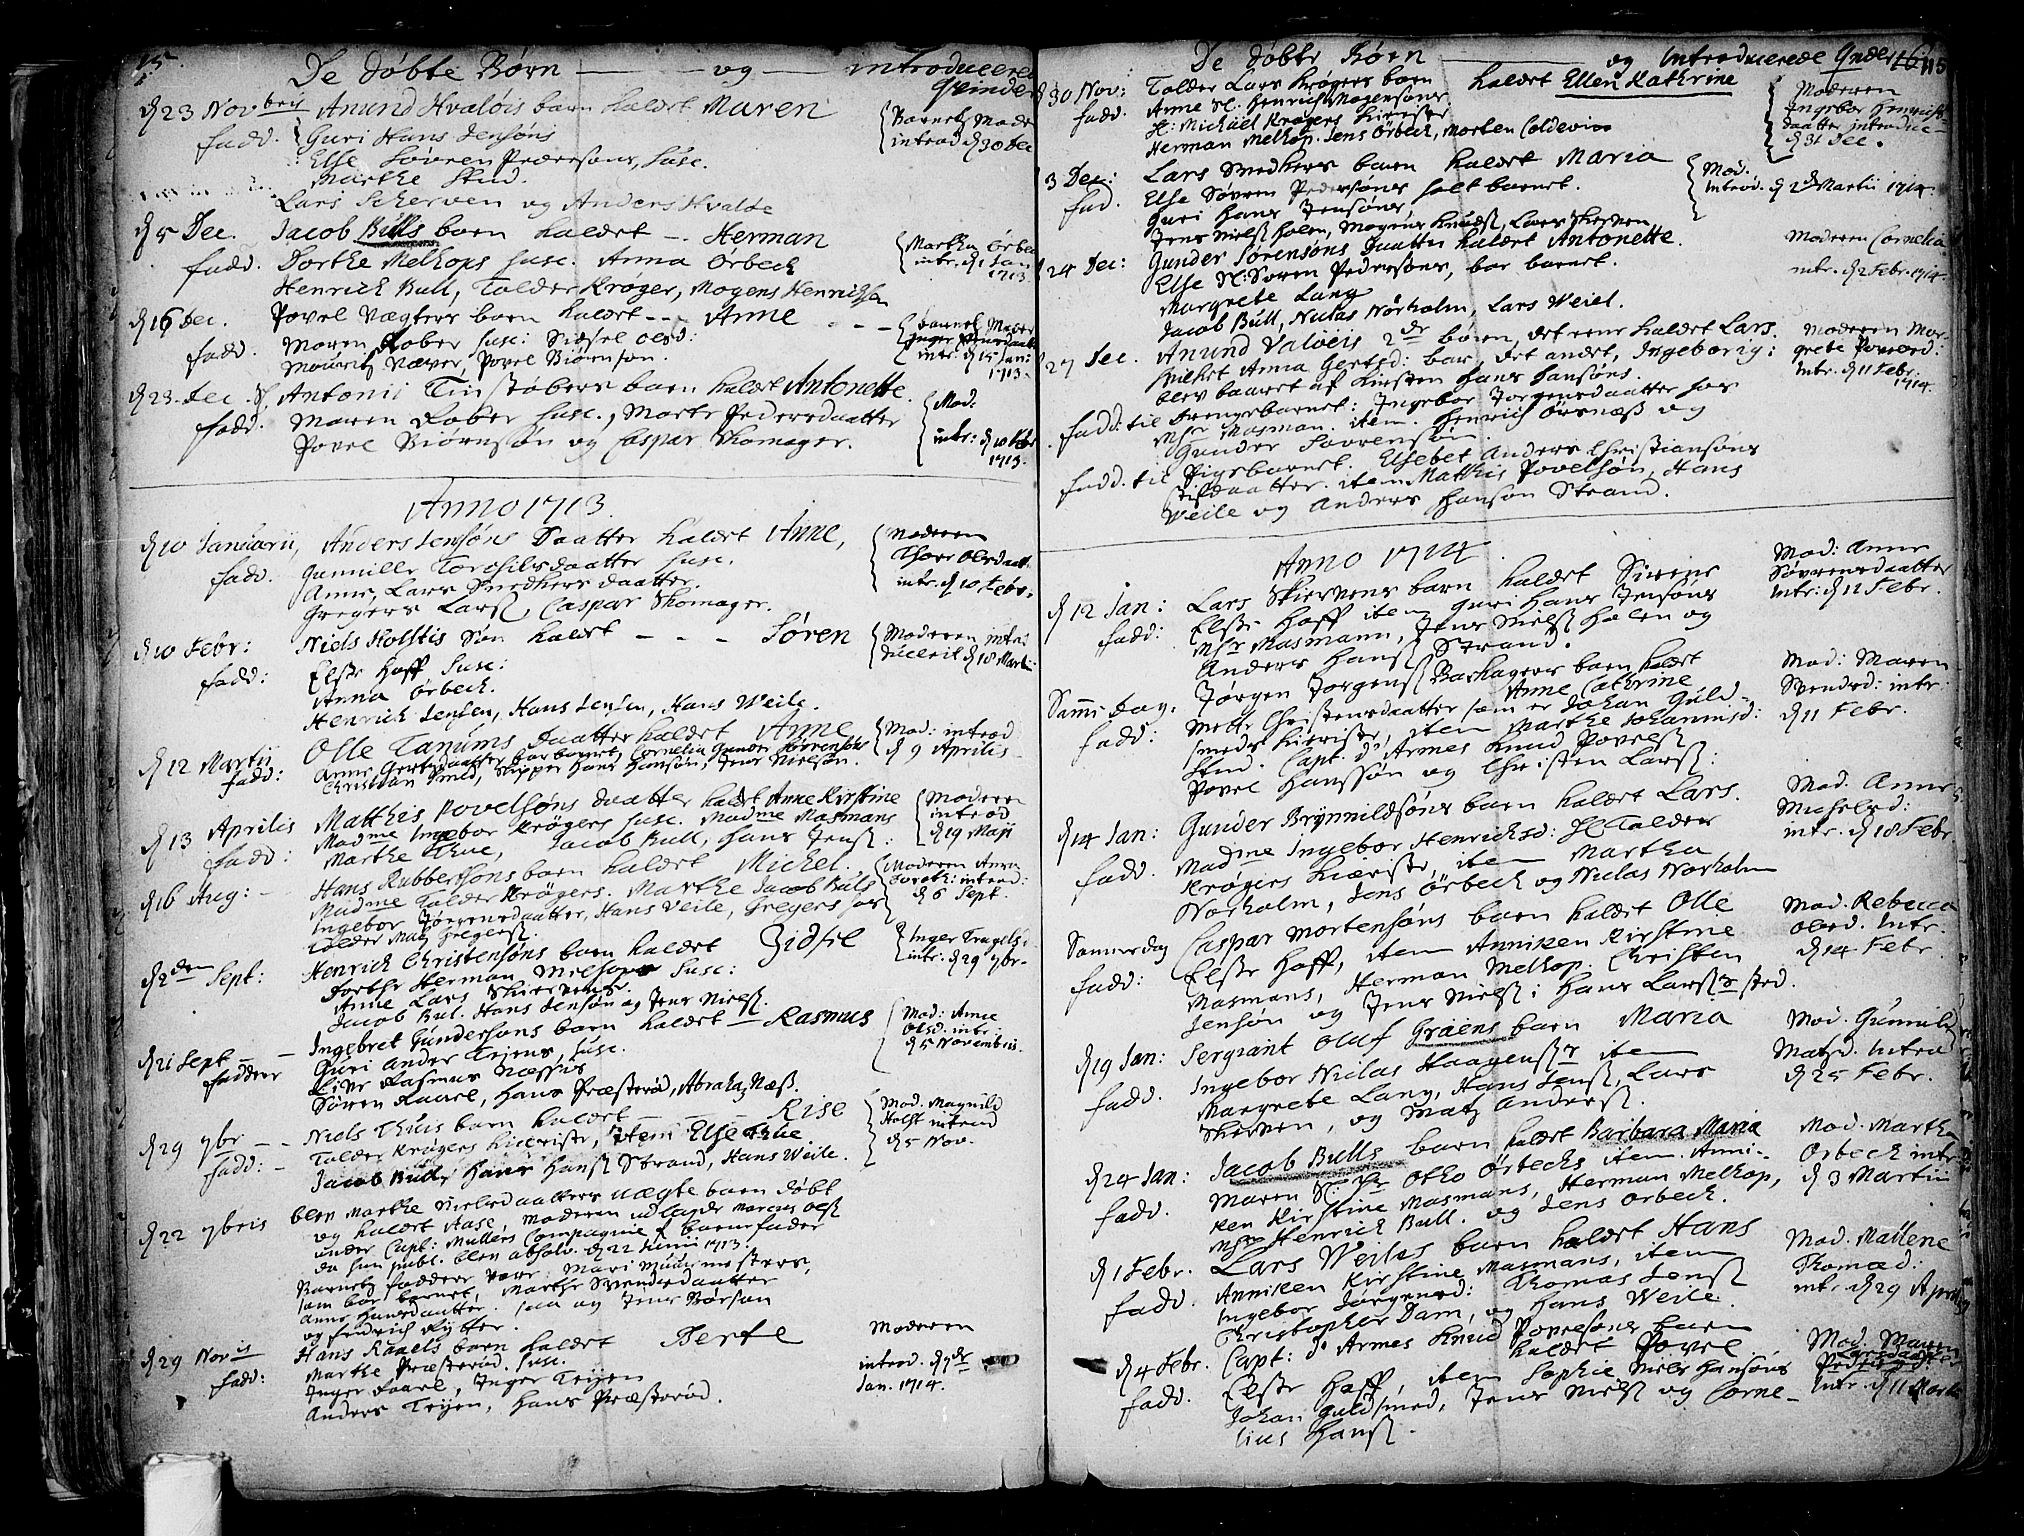 15
De døbte Børn — og — introducerede
Qvinder
d 23 Novbris Anund Hvaløis barn kaldet Maren
fadd. Guri Hans Jensøns
Else Søvren Pedersøns, Susc.
Marthe Stud.
Lars Scherven og Anders Hvalde
{Barnets Moder
introd d 30 Dec
d 5 Dec. Jacob Bulls barn kaldet — Herman
fadd. Dorthe Melkops susc. Anna Orbeck
Henrich Bull, Tolder Krøger, Mogens Henrichsen
{Martha Ørbec
intr. d 1 Jan
1713
d 16 Dec. Povel Vægters barn kaldet — Anne
fadd. Maren Raber susc: Sidsel Olsd:
Mouritz Væver, Povel Biørnsøn.
{barnets Moder
Inger
intr: d 15 Jan:
1713.
d 23. Dec. Sl. Antonii Tinstøbers barn kaldet Antonette.
fadd. Maren Raber susc., Marte Pedersdaatter
Povel Biørnsøn og Caspar Skomager.
{Mod:
intr: d 10 Febr
1713.
Anno 1713.
d 10 Januarii, Anders Jensøns Daatter kaldet Anne,
fadd. Gunnille Torchilsdaatter susc.
Anne, Lars Snedkers daatter.
Gregers Lars, Caspar Skomager.
{Moderen
Thore Olsdaatt.
intr. d 10 Febr.
d 10 Febr: Niels Holstis Søn kaldet — — — Søren
fadd: Elsse Hoff Susc:
Anna Ørbeck.
Henrich Jensen, Hans Jensen, Hans Weile.
{Moderen intro
ducerit d 18 Marti
d 12 Martii Olle Tanums Daatter kaldet Anne
fadd: Anne Gertsdaatter bar barnet, Cornelia Gunder Sørensøns
Christian Smed, Skipper Hans Hansøn, Jens Nielsøn.
{Mod: introd
d 9 Aprilis
d 13 Aprilis Matthis Povelsøns daatter kaldet Anne Kirstine
fadd: Madme Ingebor Krøgers susc. Madme Masmans
Marthe Thue, Jacob Bull, Hans Jens.
{Moderen
introd
d 19 Maji
d 16 Aug: — Hans Rubbertsøns barn kaldet Michel
Madme Tolder Krøgers. Marthe Jacob Buls
Ingebor Jørgensdaatter, Hans Veile, Gregers hos
Tolder Matz Gregers.
{Moderen Anna
Doroth: introd:
d 6 Sept.
d 2den Sept: Henrich Christensøns barn kaldet Zidsil
Dorthe Herman Nielsøns susc:
Anne Lars Skiervens.
Jacob Bul. Hans Jensøn og Jens Niels.
{Inger Trugels:
intr. d 29 7br.
d 21 Sept — Ingebret Gundersøns barn kaldet — Rasmus
faddere Guri Ander Trijens, susc.
Live Rasmus Næssis
Søren Raael, Hans Præsterød, Abraha Næs.
{Mod: Anne
Olsd. intr:
d 5 Novembris.
d 29 7br — — Niels Thuis barn kaldet — — — Rise
fadd: — Tolder Krøgers kiereste, item Else Thue.
Jacob Bull, Hans Hans Strand, Hans Weile.
{Mod. Magnild
Holst introd
d 5 Nov.
d 22 7bris blev Marthe Nielsdaatters uægte barn døbt
og kaldet Aase, Moderen udlagde Marcus Ols
under Capt: Mullers Compagnie barnefader
da hun publ. blev absolv. d 22 Junii 1713.
Barnets faddere vare: Mari Muurmesters,
som bar barnet, Marthe Svendsdaatter
Anne Hansdaatter. saa og Jens Børson
og Fredrich Rytter.
d 29 Novis Hans Raaels barn kaldet Berte
fadd: Marthe Præsterød. susc.
Inger Raael, Inger Trijen
Anders Trijen, Hans Præsterød.
Moderen
introd. d 7de
Jan. 1714.
De døbte Børn — og Introducerede Qvinder 16 115
d 30 Nov: Tolder Lars Krøgers barn kaldet Ellen Kathrine
fadd. Anne Sl. Henrich Mogensøns
Sl: Michael Krøgers kiereste
Herman Melkop. Jens Ørbeck, Morten Coldevin
{Moderen
Ingebor Henrichs-
daatter introduc-
d 31 Dec.
3 Dec: Lars Snedkers barn kaldet Maria
fad. Else Søvren Pedersøns holt barnet.
Guri Hans Jensøns
Jens Niels Holen, Mogens Knuds, Lars Skerven
{Mod.
introd. d 2d Martii 1714.
24 Dec: Gunder Sørensøns Daatter kaldet Antonette.
Else Sl: Soren Pedersøns, bar barnet.
Margrete Lang
Jacob Bull, Niclas Nørholm, Lars Weiel.
Moderen Cornelia
intr. d 2 Febr. 1714.
27 Dec. Anund Valøeis 2de børn, det eene kaldet Lars.
hvilket Anna Gertsd: bar, det andet, Ingeborig:
blev baaret af Kirsten Hans Hansøns.
fadd: til drengebarnet: Ingebor Jørgensdaatter hos
Mhr Masman. item. Henrich Ørsnæs og
Gunder Sørrensøn.
fadd. til Pigebarnet. Elsebet Anders Christiansøns
Stifdaatter. item Matthis Povelsøn, Hans
Veile og Anders Hansøn Strand.
Moderen Mar-
grete Povelsd:
intr. d 11 Febr.
1714.
Anno 1714.
d 12 Jan: Lars Skiervens barn kaldet Sirene
fadd: Elsse Hoff item Guri Hans Jensøns
Mhr Masmann, Jens Niels Holen og
Anders Hans Strand.
Mod: Anne
Søvrensdaatter
intr: d 12 Febr.
Samme dag. Jørgen Jørgens Barhagers barn kaldet
Anne Cathrine
fadd: Mette Christensdaatter som er Johan Guld-
smeds kiereste, item Marthe Johannisd:
Stud. Capt. d' Armes Knud Povels
Povel Hanssøn og Christen Lars:
Mod: Maren
Svendsd: intr:
d 11 Febr.
d 14 Jan: Gunder Brynnildsøns barn kaldet Lars.
fadd. Madme Ingebor Henrichsd: Sl Tolder
Krøgers kiereste, item Martha
Norholm, Jens Ørbeck og Niclas Norholm
Mod. Anne
Michelsd:
intr. d 18 Febr
Sammedag Caspar Mortensøns barn kaldet Olle
fadd: Elsse Hoff, item Anniken Kirstine
Masmans, Herman Melkop. Christen
Jensøn og Jens Niels i Hans Lars sted.
Mod. Rebecca
Olesd. intr.
d 14 Febr
d 19 Jan: Sergeant Oluf Graens barn Maria
fadd. Ingebor Niclas Haagens item
Margrete Lang, Hans Jens, Lars
Skerven, og Matz Anders.
Mod. Gunnild
Matzd. introd
d 25 Febr.
d 24 Jan: Jacob Bulls barn kaldet Barbara Maria
fadd. Maren Sl: Hr Otho Ørbecks item. Anni-
ken Kirstine Masmans, Herman Melkop,
Mhr Henrich Bull. og Jens Orbeck.
Mod. Martha
Orbeck intr
d 3 Martii
d 1 Febr. Lars Weiles barn kaldet Hans
fadd. Anniken Kirstine Masmans, item
Ingebor Jørgensd: Thomas Jens
Christopher Dam, og Hans Weile.
Mod. Mallene
Thomæd:
intr. d 29 Aprilis
d 4 Febr. Capt: d' Armes Knud Povelsøns barn
kaldet Povel
fadd. Elsse Hoff, item Sophie Niels Hansøns
Johan Guldsmed, Jens Niels og Corne-
lius Hans.
Mod. Maren
Larsdaatter
intr. d 11 Marti